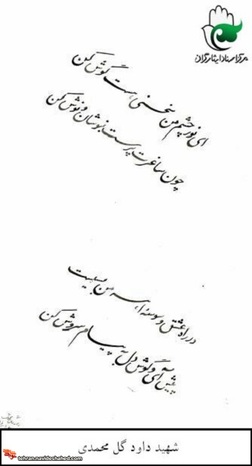 مرکز اسناد ایثارگران
ای نور چشم من سخنی هست گوش کن
چون ساغرت پرست بنوشان و نوش کن
در راه عشق وسوسه اهرمن بسیست
پیش آی و گوش دل به پیام سروش کن
شهید داود گل محمدی
tehran.navideshahed.com